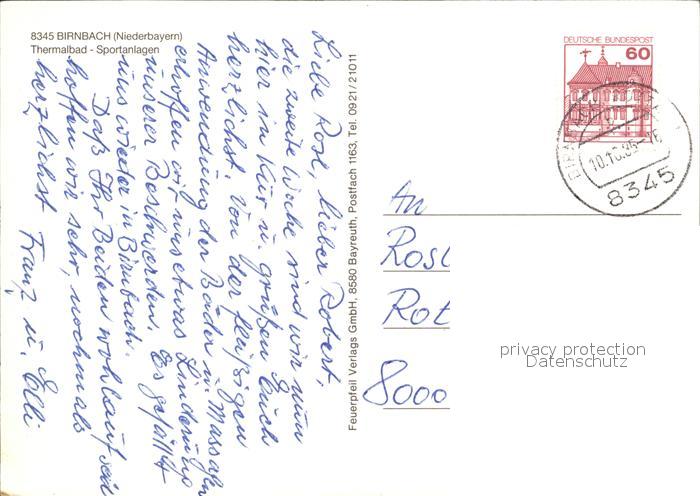 8345 BIRNBACH (Niederbayern)
Thermalbad - Sportanlagen
Liebe Rosl, lieber Robert,
die zweite Woche sind wir nun
hier in Kur u. grüßen Euch
herzlichst. Von der fleißigen
Anwendung der Bäder u. Massagen
erhoffen wir uns etwas Linderung
unserer Beschwerden. Es gefällt
uns wieder in Birnbach.
Daß Ihr Beiden wohlauf seid
hoffen wir sehr, nochmals
herzlichst Franz u. Elli
Feuerpfeil Verlags GmbH, 8580 Bayreuth, Postfach 1163, Tel. 0921/21011
DEUTSCHE BUNDESPOST
60
10.10.85-16
8345
An
Rosl
Rot
8000
privacy protection
Datenschutz